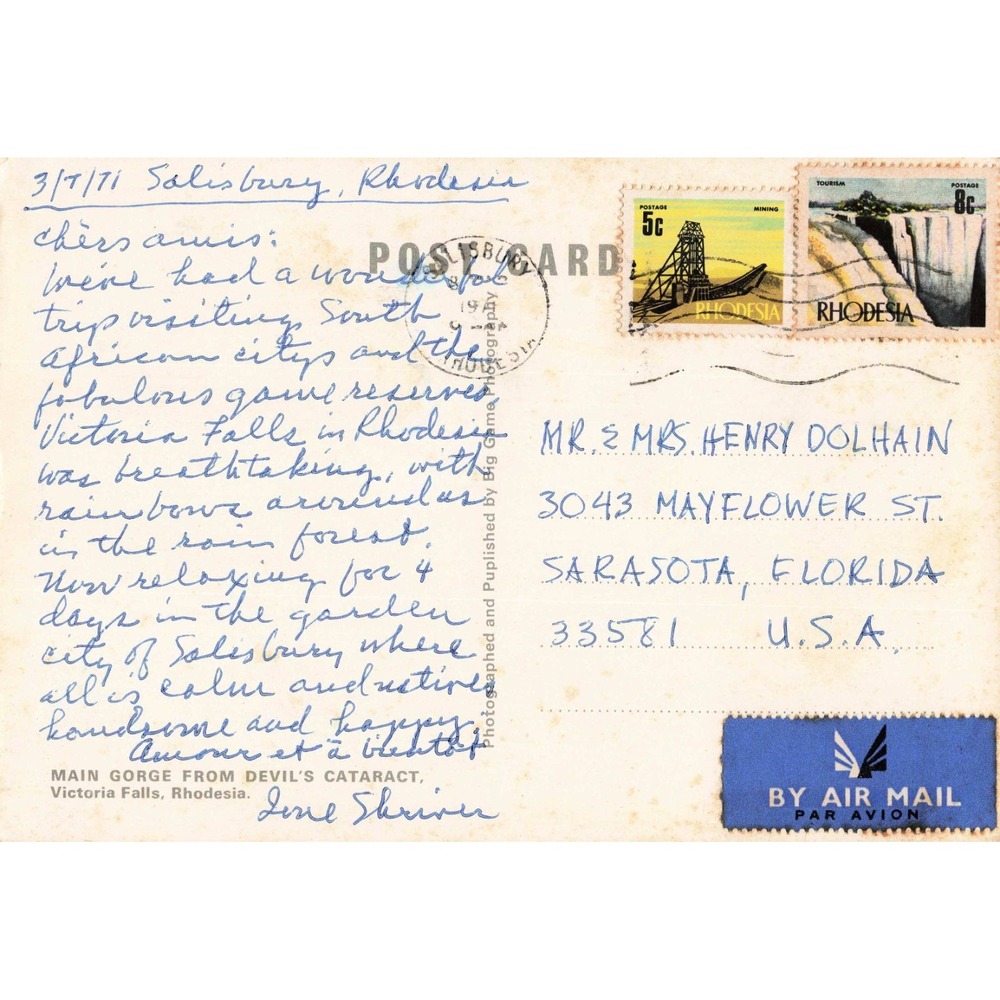 3/7/71 Salisbury, Rhodesia
chèrs amis:
We've had a wonderful
trip visiting South
African citys and the
fabulous game reserves
Victoria Falls in Rhodesia
was breathtaking, with
rainbows around us
in the rain forest.
Now relaxing for 4
days in the garden
city of Salisbury where
all is calm and natives
handsome and happy.
Amour et à bientot
Shriver
MAIN GORGE FROM DEVIL'S CATARACT,
Victoria Falls, Rhodesia.
POST CARD
SALISBURY
RHODESIA
Photographed and Puplished by Big Game Photography
POSTAGE
MINING
5c
RHODESIA
TOURISM
POSTAGE
8c
RHODESIA
MR. & MRS. HENRY DOLHAIN
3043 MAYFLOWER ST.
SARASOTA, FLORIDA
33581 U.S.A.
BY AIR MAIL
PAR AVION